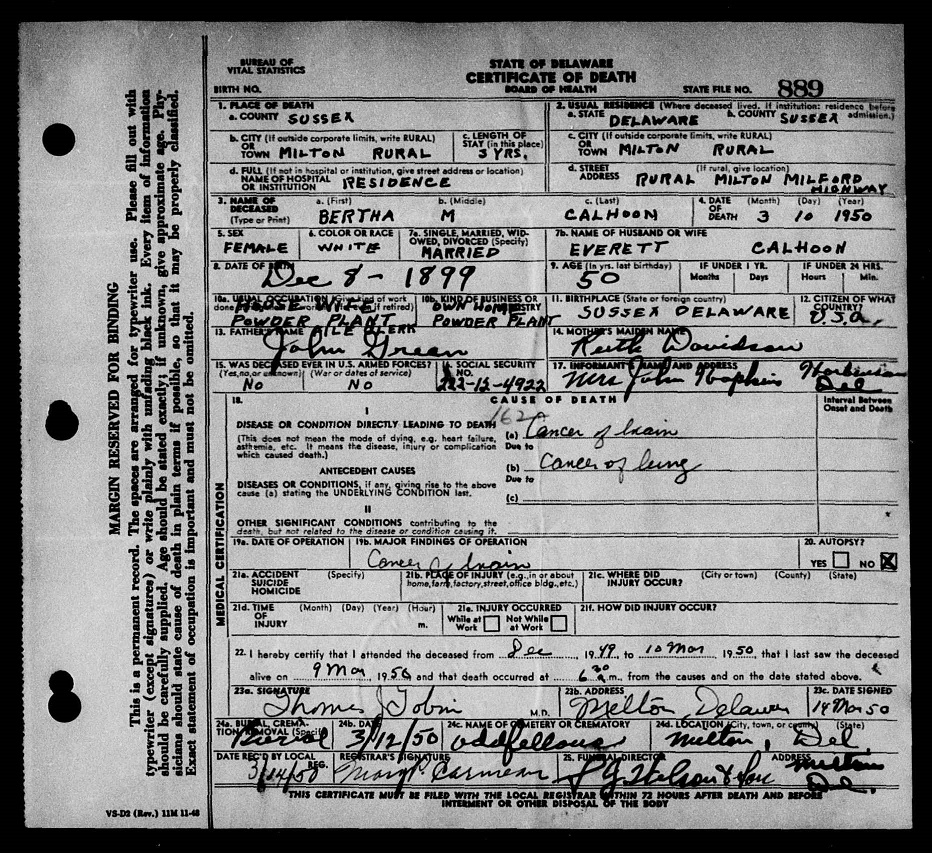 MARGIN RESERVED FOR BINDING
This is a permanent record. The spaces are arranged for typewriter use. Please fill out with
typewriter (except signatures) or write plainly with unfading black ink. Every item of information
should be carefully supplied. Age should be stated exactly; if unknown, give approximate age. Phy-
sicians should state cause of death in plain terms if possible, so that it may be properly classified.
Exact statement of occupation is important and must not be omitted.
VS-D2 (Rev.) 11M 11-48
BUREAU OF
VITAL STATISTICS
STATE OF DELAWARE
CERTIFICATE OF DEATH
BOARD OF HEALTH
BIRTH NO.
STATE FILE NO. 889
1. PLACE OF DEATH
a. COUNTY SUSSEX
2. USUAL RESIDENCE (Where deceased lived. If institution: residence before admission.)
a. STATE DELAWARE b. COUNTY SUSSEX
b. CITY (If outside corporate limits, write RURAL)
OR
TOWN MILTON RURAL
c. LENGTH OF
STAY (in this place)
3 YRS.
c. CITY (If outside corporate limits, write RURAL)
OR
TOWN MILTON RURAL
d. FULL (If not in hospital or institution, give street address or location)
NAME OF HOSPITAL
OR INSTITUTION RESIDENCE
d. STREET (If rural, give location)
ADDRESS RURAL MILTON MILFORD
HIGHWAY
3. NAME OF
DECEASED
(Type or Print)
a. (First) b. (Middle) c. (Last)
BERTHA M CALHOON
4. DATE
OF
DEATH
(Month) (Day) (Year)
3 10 1950
5. SEX
FEMALE
6. COLOR OR RACE
WHITE
7a. SINGLE, MARRIED, WID-
OWED, DIVORCED (Specify)
MARRIED
7b. NAME OF HUSBAND OR WIFE
EVERETT CALHOON
8. DATE OF BIRTH
Dec 8 - 1899
9. AGE (In yrs. last birthday)
50
IF UNDER 1 YR.
Months Days
IF UNDER 24 HRS.
Hours Min.
10a. USUAL OCCUPATION (Give kind of work
done if retired)
HOUSE WIFE
POWDER PLANT
FILE CLERK
10b. KIND OF BUSINESS OR
INDUSTRY
OWN HOME
POWDER PLANT
11. BIRTHPLACE (State or foreign country)
SUSSEX DELAWARE
12. CITIZEN OF WHAT
COUNTRY?
U.S.A.
13. FATHER'S NAME
John Green
14. MOTHER'S MAIDEN NAME
Ruth Davidson
15. WAS DECEASED EVER IN U.S. ARMED FORCES?
(Yes, no, or unknown) (War or dates of service)
No No
16. SOCIAL SECURITY
NO.
222-12-4922
17. INFORMANT NAME AND ADDRESS
Mrs John Hopkins Harbeson
Del
18. CAUSE OF DEATH
Interval Between
Onset and Death
I
DISEASE OR CONDITION DIRECTLY LEADING TO DEATH
(This does not mean the mode of dying, e.g. heart failure,
asthenia, etc. It means the disease, injury or complication
which caused death.)
(a) Cancer of brain
Due to
ANTECEDENT CAUSES
(b) Cancer of lung
Due to
DISEASES OR CONDITIONS, if any, giving rise to the above
cause (a) stating the UNDERLYING CONDITION last.
(c)
II
OTHER SIGNIFICANT CONDITIONS contributing to the
death, but not related to the disease or condition causing it.
19a. DATE OF OPERATION
19b. MAJOR FINDINGS OF OPERATION
Cancer of brain
20. AUTOPSY?
YES NO X
21a. ACCIDENT (Specify)
SUICIDE
HOMICIDE
21b. PLACE OF INJURY (e.g., in or about
home, farm, factory, street, office bldg., etc.)
21c. WHERE DID (City or town) (County) (State)
INJURY OCCUR?
21d. TIME (Month) (Day) (Year) (Hour)
OF
INJURY m.
21e. INJURY OCCURRED
While at Work Not While at Work
21f. HOW DID INJURY OCCUR?
MEDICAL CERTIFICATION
22. I hereby certify that I attended the deceased from Dec 1949, to 10 Mar, 1950, that I last saw the deceased
alive on 9 Mar, 1950 and that death occurred at 6 30 a.m., from the causes and on the date stated above.
23a. SIGNATURE
Thomas J Tobin M.D.
23b. ADDRESS
Milton Delaware
23c. DATE SIGNED
14 Mar 50
24a. BURIAL, CREMA-
TION, REMOVAL (Specify)
Burial
24b. DATE
3/12/50
24c. NAME OF CEMETERY OR CREMATORY
oddfellows
24d. LOCATION (City, town, or county) (State)
Milton, Del
DATE REC'D BY LOCAL
REG.
3/14/50
REGISTRAR'S SIGNATURE
Mary P. Carmean
25. FUNERAL DIRECTOR ADDRESS
Wilson & Son Milton
Del.
THIS CERTIFICATE MUST BE FILED WITH THE LOCAL REGISTRAR WITHIN 72 HOURS AFTER DEATH AND BEFORE
INTERMENT OR OTHER DISPOSAL OF THE BODY